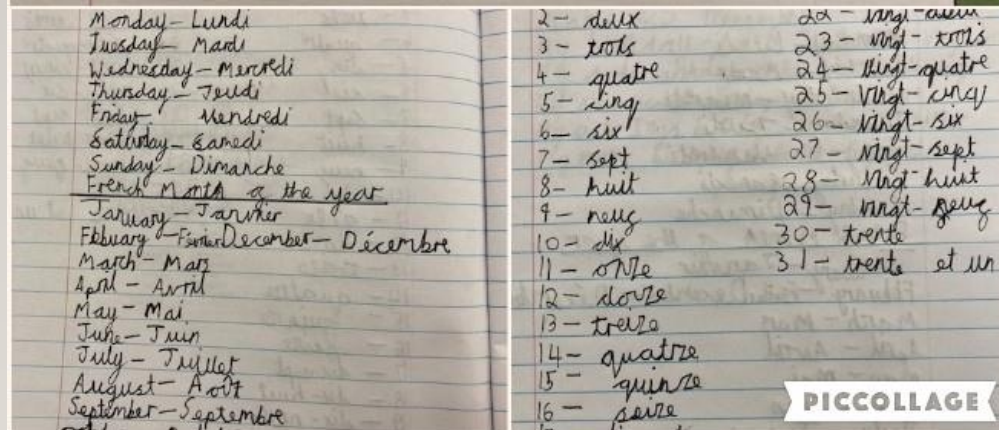 Monday - Lundi
Tuesday - Mardi
Wednesday - Mercredi
Thursday - Jeudi
Friday - Vendredi
Saturday - Samedi
Sunday - Dimanche
French Month of the year
January - Janvier
Febuary - Février December - Décembre
March - Mars
April - Avril
May - Mai
June - Juin
July - Juillet
August - Août
September - Septembre
2 - deux
3 - trois
4 - quatre
5 - cinq
6 - six
7 - sept
8 - huit
9 - neuf
10 - dix
11 - onze
12 - douze
13 - treize
14 - quatrze
15 quinze
16 - seize
22 - vingt-deux
23 - vingt-trois
24 - vingt-quatre
25 - vingt-cinq
26 - vingt-six
27 - vingt-sept
28 - vingt-huit
29 - vingt-neuf
30 - trente
31 - trente et un
PICCOLLAGE